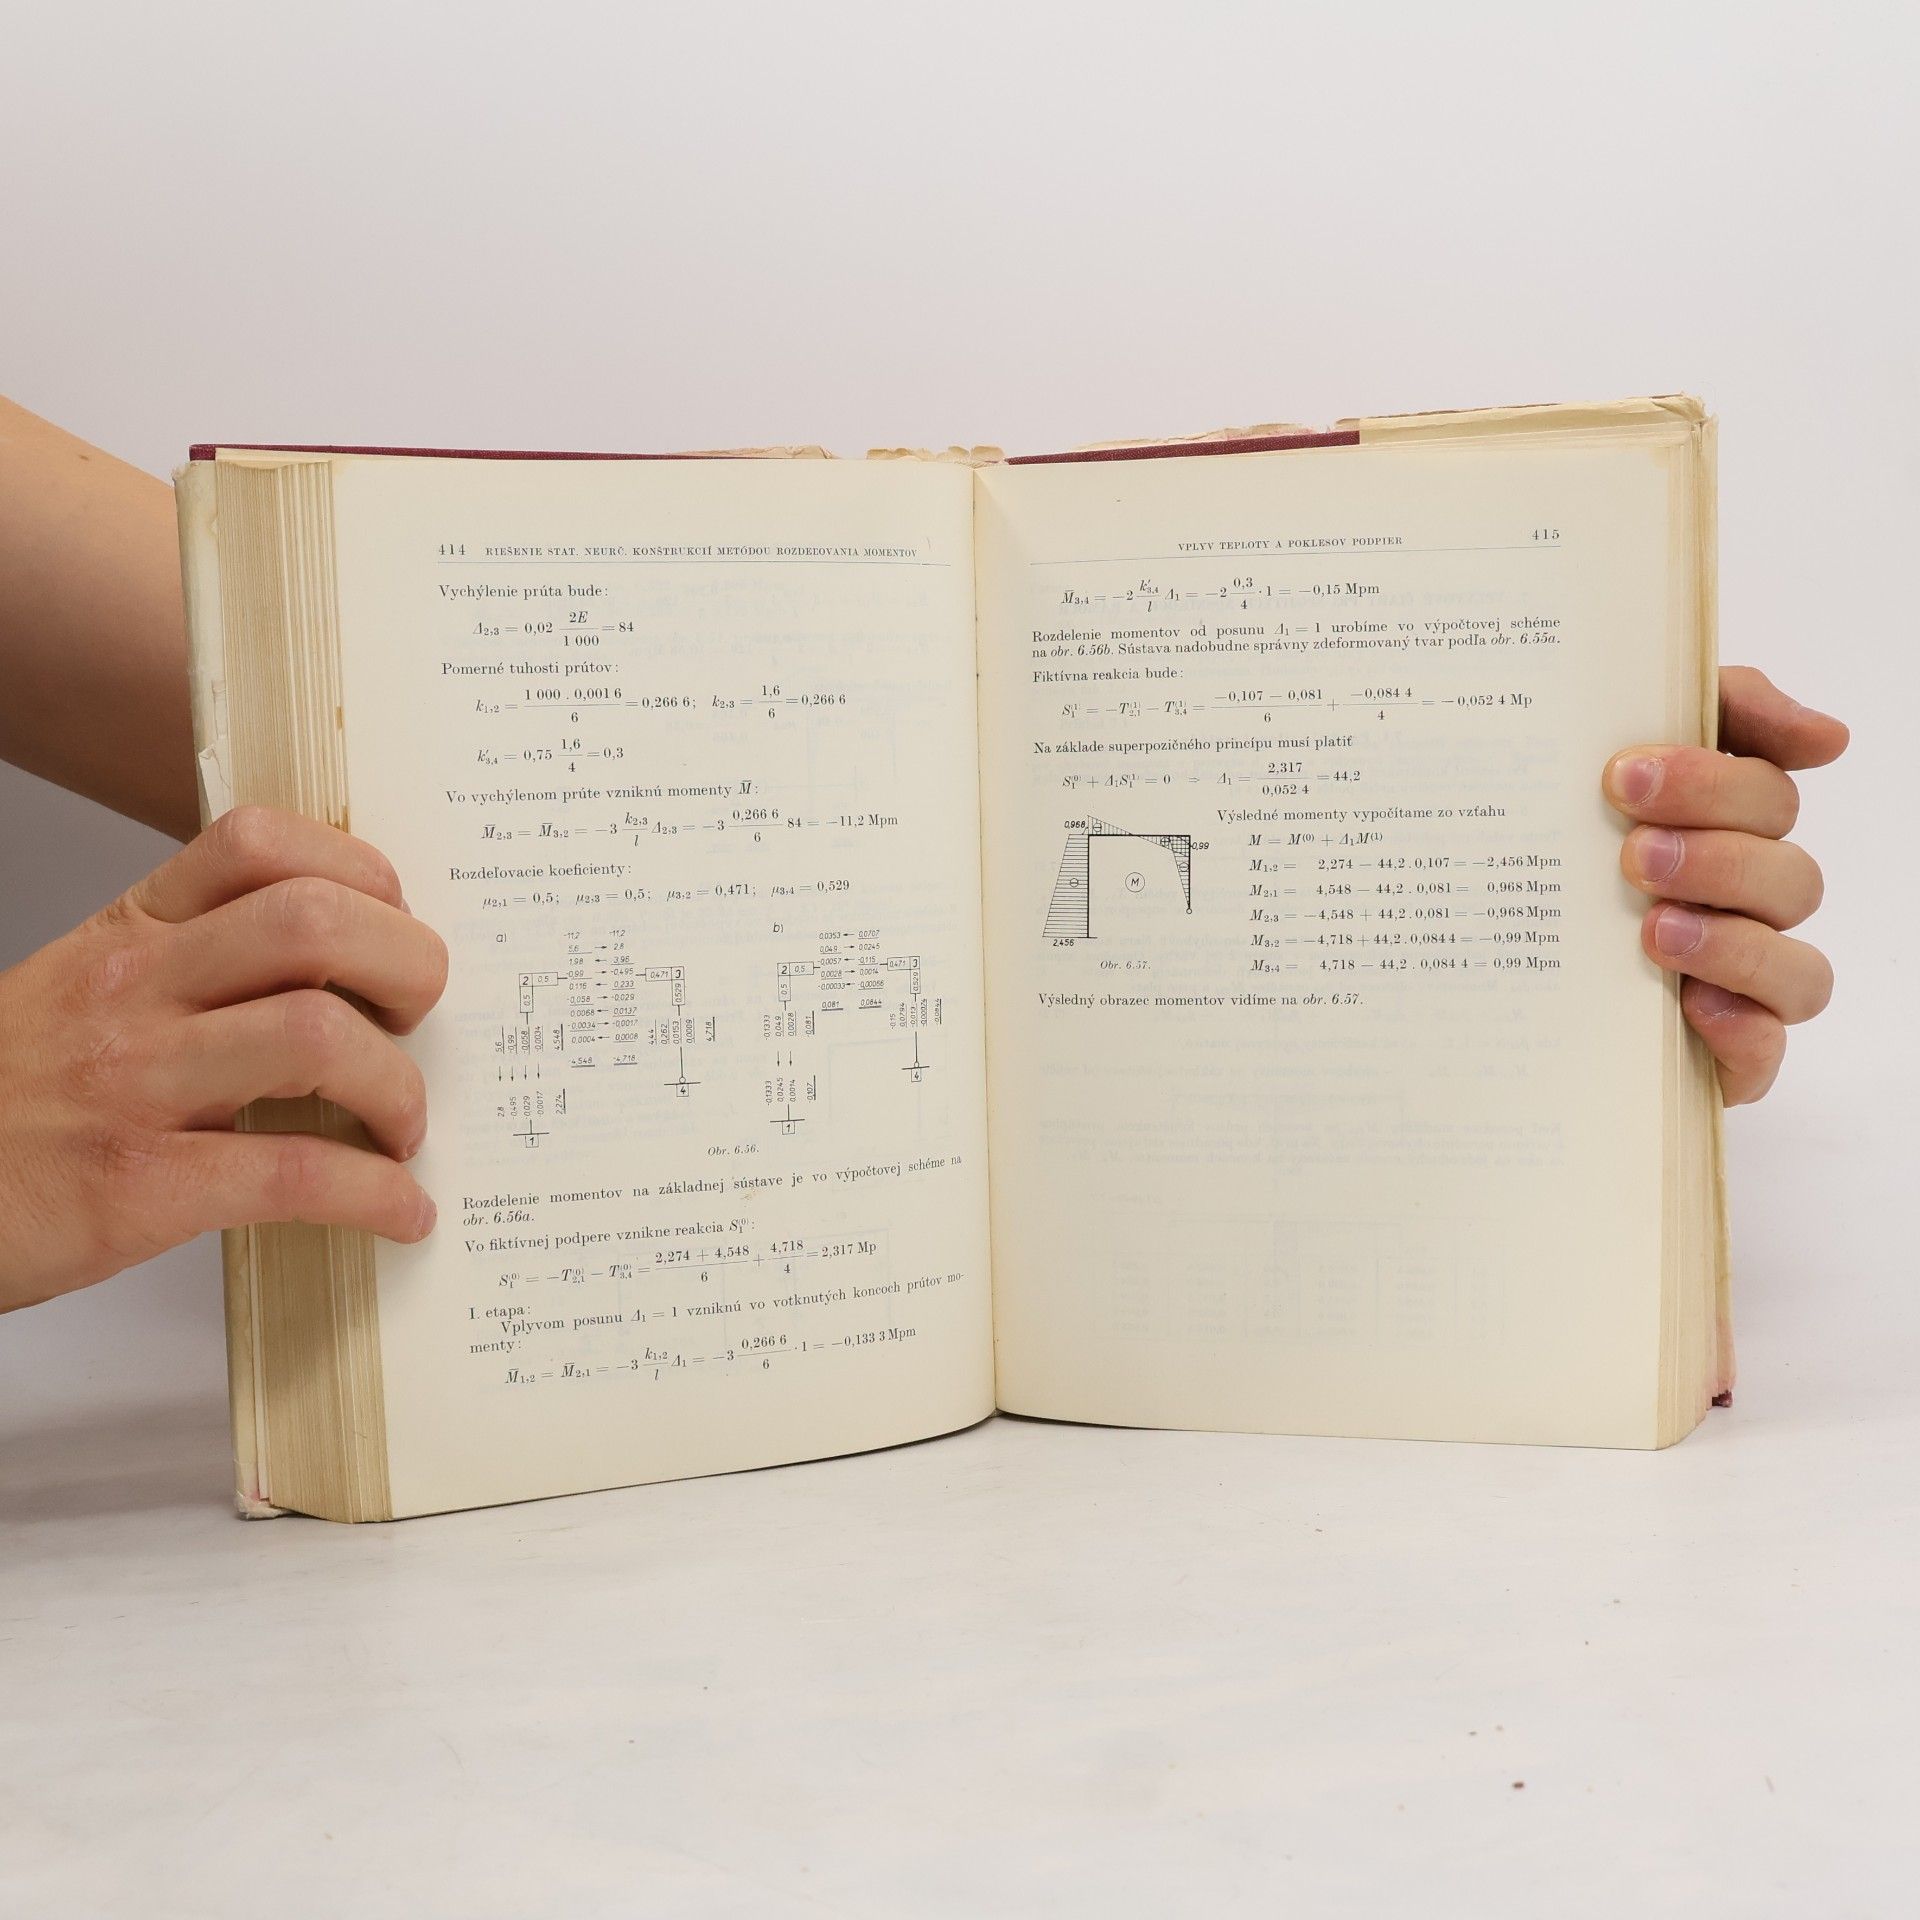 414 RIEŠENIE STAT. NEURČ. KONŠTRUKCIÍ METÓDOU ROZDEĽOVANIA MOMENTOV
Vychýlenie prúta bude:
Δ2,3 = 0,02 2E/1 000 = 84
Pomerné tuhosti prútov:
k1,2 = 1 000 . 0,001 6/6 = 0,266 6; k2,3 = 1,6/6 = 0,266 6
k′3,4 = 0,75 1,6/4 = 0,3
Vo vychýlenom prúte vzniknú momenty M̄:
M̄2,3 = M̄3,2 = −3 k2,3/l Δ2,3 = −3 0,266 6/6 84 = −11,2 Mpm
Rozdeľovacie koeficienty:
μ2,1 = 0,5; μ2,3 = 0,5; μ3,2 = 0,471; μ3,4 = 0,529
a)
-11,2 -11,2
5,6 → 2,8
1,98 ← 3,96
2 0,5 -0,99 → -0,495 0,471 3
0,116 ← 0,233
-0,058 → -0,029
0,0068 ← 0,0137
-0,0034 → -0,0017
0,0004 ← 0,0008
-4,548 -4,718
0,5
0,529
5,6 -0,99 -0,058 -0,0034 4,548
4,44 0,262 0,0153 0,0009 4,718
2,8 -0,495 -0,029 -0,0017 2,274
4
1
b)
0,0353 ← 0,0707
0,049 → 0,0245
2 0,5 -0,0057 ← -0,115 0,471 3
0,0028 → 0,0014
-0,00033 ← -0,00066
0,081 0,0844
0,5
0,529
-0,1333 0,049 0,0028 -0,081
-0,15 0,0794 -0,013 -0,00074 -0,0844
-0,1333 0,0245 0,0014 0,107
4
1
Obr. 6.56.
Rozdelenie momentov na základnej sústave je vo výpočtovej schéme na
obr. 6.56a.
Vo fiktívnej podpere vznikne reakcia S1(0):
S1(0) = −T2,1(0) − T3,4(0) = 2,274 + 4,548/6 + 4,718/4 = 2,317 Mp
I. etapa:
Vplyvom posunu Δ1 = 1 vzniknú vo votknutých koncoch prútov mo-
menty:
M̄1,2 = M̄2,1 = −3 k1,2/l Δ1 = −3 0,266 6/6 · 1 = −0,133 3 Mpm
VPLYV TEPLOTY A POKLESOV PODPIER 415
M̄3,4 = −2 k′3,4/l Δ1 = −2 0,3/4 · 1 = −0,15 Mpm
Rozdelenie momentov od posunu Δ1 = 1 urobíme vo výpočtovej schéme
na obr. 6.56b. Sústava nadobudne správny zdeformovaný tvar podľa obr. 6.55a.
Fiktívna reakcia bude:
S1(1) = −T2,1(1) − T3,4(1) = −0,107 − 0,081/6 + −0,084 4/4 = −0,052 4 Mp
Na základe superpozičného princípu musí platiť
S1(0) + Δ1S1(1) = 0 ⇒ Δ1 = 2,317/0,052 4 = 44,2
Výsledné momenty vypočítame zo vzťahu
M = M(0) + Δ1M(1)
M1,2 = 2,274 − 44,2 . 0,107 = −2,456 Mpm
M2,1 = 4,548 − 44,2 . 0,081 = 0,968 Mpm
M2,3 = −4,548 + 44,2 . 0,081 = −0,968 Mpm
M3,2 = −4,718 + 44,2 . 0,084 4 = −0,99 Mpm
M3,4 = 4,718 − 44,2 . 0,084 4 = 0,99 Mpm
0,968
0,99
M
2,456
Obr. 6.57.
Výsledný obrazec momentov vidíme na obr. 6.57.